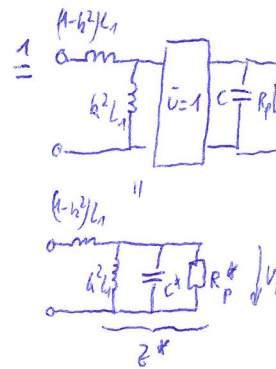 (1-k²)L₁
1
k²L₁
ü=1
C
Rp
(1-k²)L₁
"
k²L₁
C*
Rp*
V
Z*